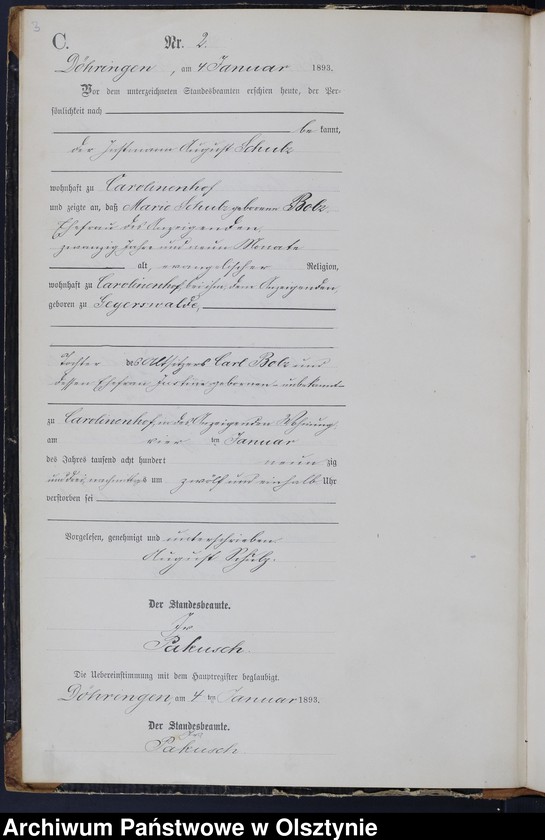 3
C.
Nr. 2.
Döhringen, am 4 Januar 1893.
Vor dem unterzeichneten Standesbeamten erschien heute, der Per-
sönlichkeit nach
be kannt,
der Instmann August Schulz
wohnhaft zu Carolinenhof
und zeigte an, daß Marie Schulz geborene Bolz,
Ehefrau des Anzeigenden,
zwanzig Jahre und neun Monate
alt, evangelischer Religion,
wohnhaft zu Carolinenhof, bei ihm, dem Anzeigenden,
geboren zu Geyerswalde,
Tochter des Altsitzers Carl Bolz und
dessen Ehefrau Justine geborenen - unbekannt -
zu Carolinenhof, in des Anzeigenden Wohnung,
am vier ten Januar
des Jahres tausend acht hundert neun zig
und drei, nachmittags um zwölf und einhalb Uhr
verstorben sei
Vorgelesen, genehmigt und unterschrieben
August Schulz.
Der Standesbeamte.
Pakusch
Die Uebereinstimmung mit dem Hauptregister beglaubigt.
Döhringen, am 4 ten Januar 1893.
Der Standesbeamte.
Pakusch
Archiwum Państwowe w Olsztynie